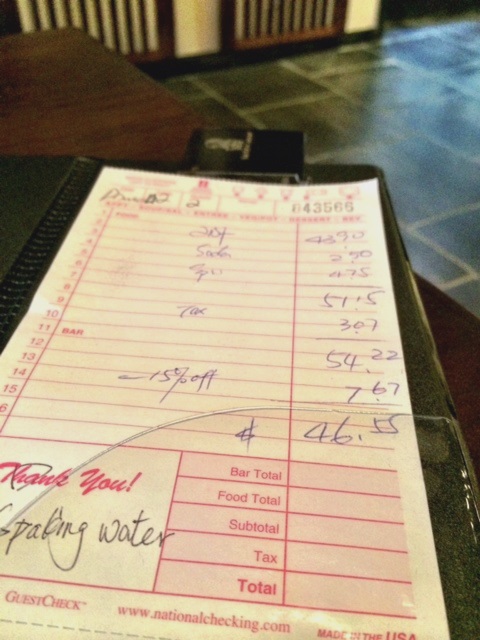 643566
FOOD
43.90
Soda 2.50
4.75
51.15
9
10 Tax 3.07
11 BAR
12 54.22
13
14 -15% off 7.67
15
6 $ 46.55
Bar Total
Thank You!
Food Total
Subtotal
Spaking water
Tax
Total
GUESTCHECK™ www.nationalchecking.com MADE IN THE USA